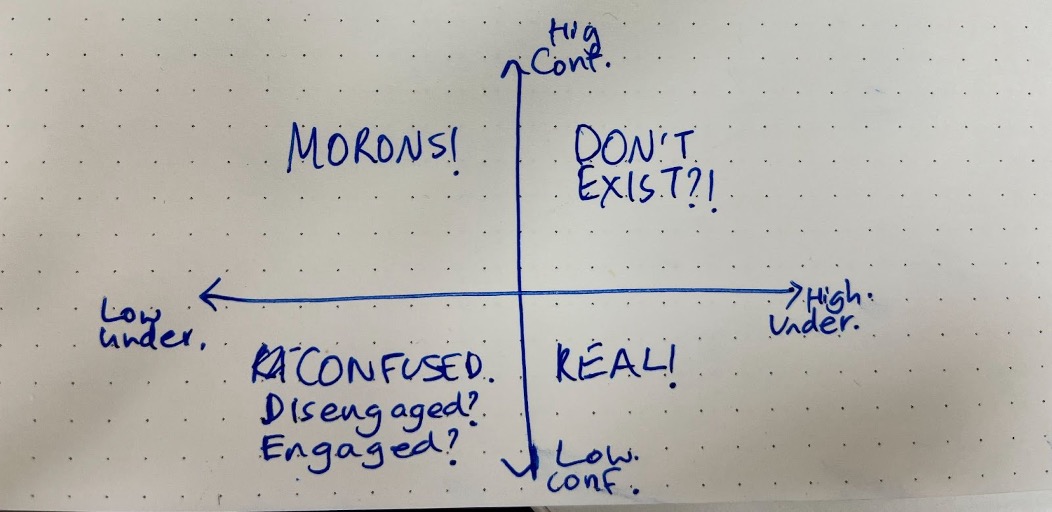 Hig
Conf.
MORONS!
DON'T
EXIST?!
Low
under.
High.
Under.
CONFUSED.
Disengaged?
Engaged?
REAL!
Low.
conf.